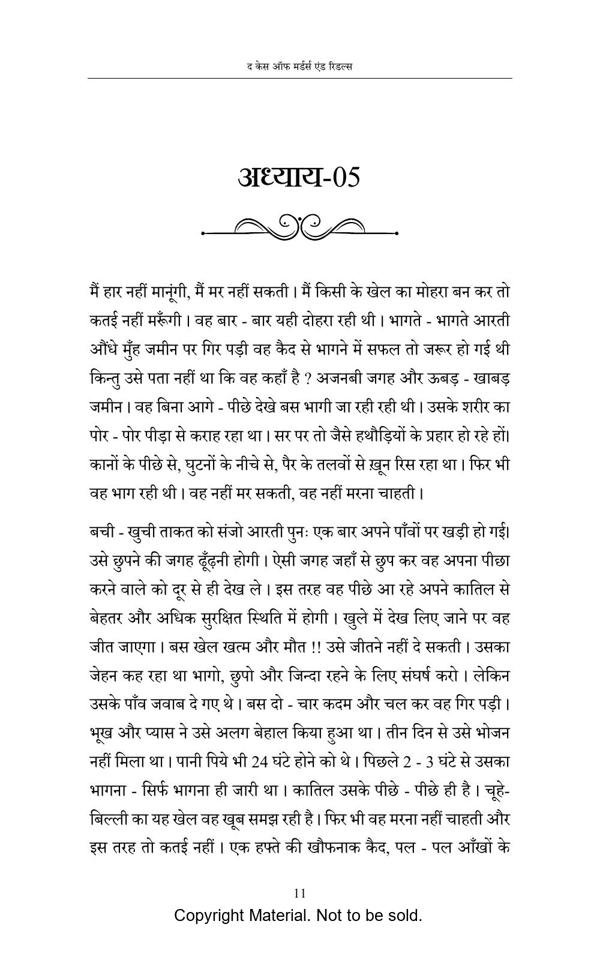 द केस ऑफ मर्डर्स एंड रिडल्स
अध्याय-05
मैं हार नहीं मानूंगी, मैं मर नहीं सकती । मैं किसी के खेल का मोहरा बन कर तो
कतई नहीं मरूँगी । वह बार - बार यही दोहरा रही थी । भागते - भागते आरती
औंधे मुँह जमीन पर गिर पड़ी वह कैद से भागने में सफल तो जरूर हो गई थी
किन्तु उसे पता नहीं था कि वह कहाँ है ? अजनबी जगह और ऊबड़ - खाबड़
जमीन । वह बिना आगे - पीछे देखे बस भागी जा रही रही थी । उसके शरीर का
पोर - पोर पीड़ा से कराह रहा था । सर पर तो जैसे हथौड़ियों के प्रहार हो रहे हों।
कानों के पीछे से, घुटनों के नीचे से, पैर के तलवों से ख़ून रिस रहा था । फिर भी
वह भाग रही थी । वह नहीं मर सकती, वह नहीं मरना चाहती ।
बची - खुची ताकत को संजो आरती पुनः एक बार अपने पाँवों पर खड़ी हो गई।
उसे छुपने की जगह ढूँढ़नी होगी । ऐसी जगह जहाँ से छुप कर वह अपना पीछा
करने वाले को दूर से ही देख ले । इस तरह वह पीछे आ रहे अपने कातिल से
बेहतर और अधिक सुरक्षित स्थिति में होगी । खुले में देख लिए जाने पर वह
जीत जाएगा । बस खेल खत्म और मौत !! उसे जीतने नहीं दे सकती । उसका
जेहन कह रहा था भागो, छुपो और जिन्दा रहने के लिए संघर्ष करो । लेकिन
उसके पाँव जवाब दे गए थे । बस दो - चार कदम और चल कर वह गिर पड़ी ।
भूख और प्यास ने उसे अलग बेहाल किया हुआ था । तीन दिन से उसे भोजन
नहीं मिला था । पानी पिये भी 24 घंटे होने को थे । पिछले 2 - 3 घंटे से उसका
भागना - सिर्फ भागना ही जारी था । कातिल उसके पीछे - पीछे ही है । चूहे-
बिल्ली का यह खेल वह खूब समझ रही है । फिर भी वह मरना नहीं चाहती और
इस तरह तो कतई नहीं । एक हफ्ते की खौफनाक कैद, पल - पल आँखों के
11
Copyright Material. Not to be sold.